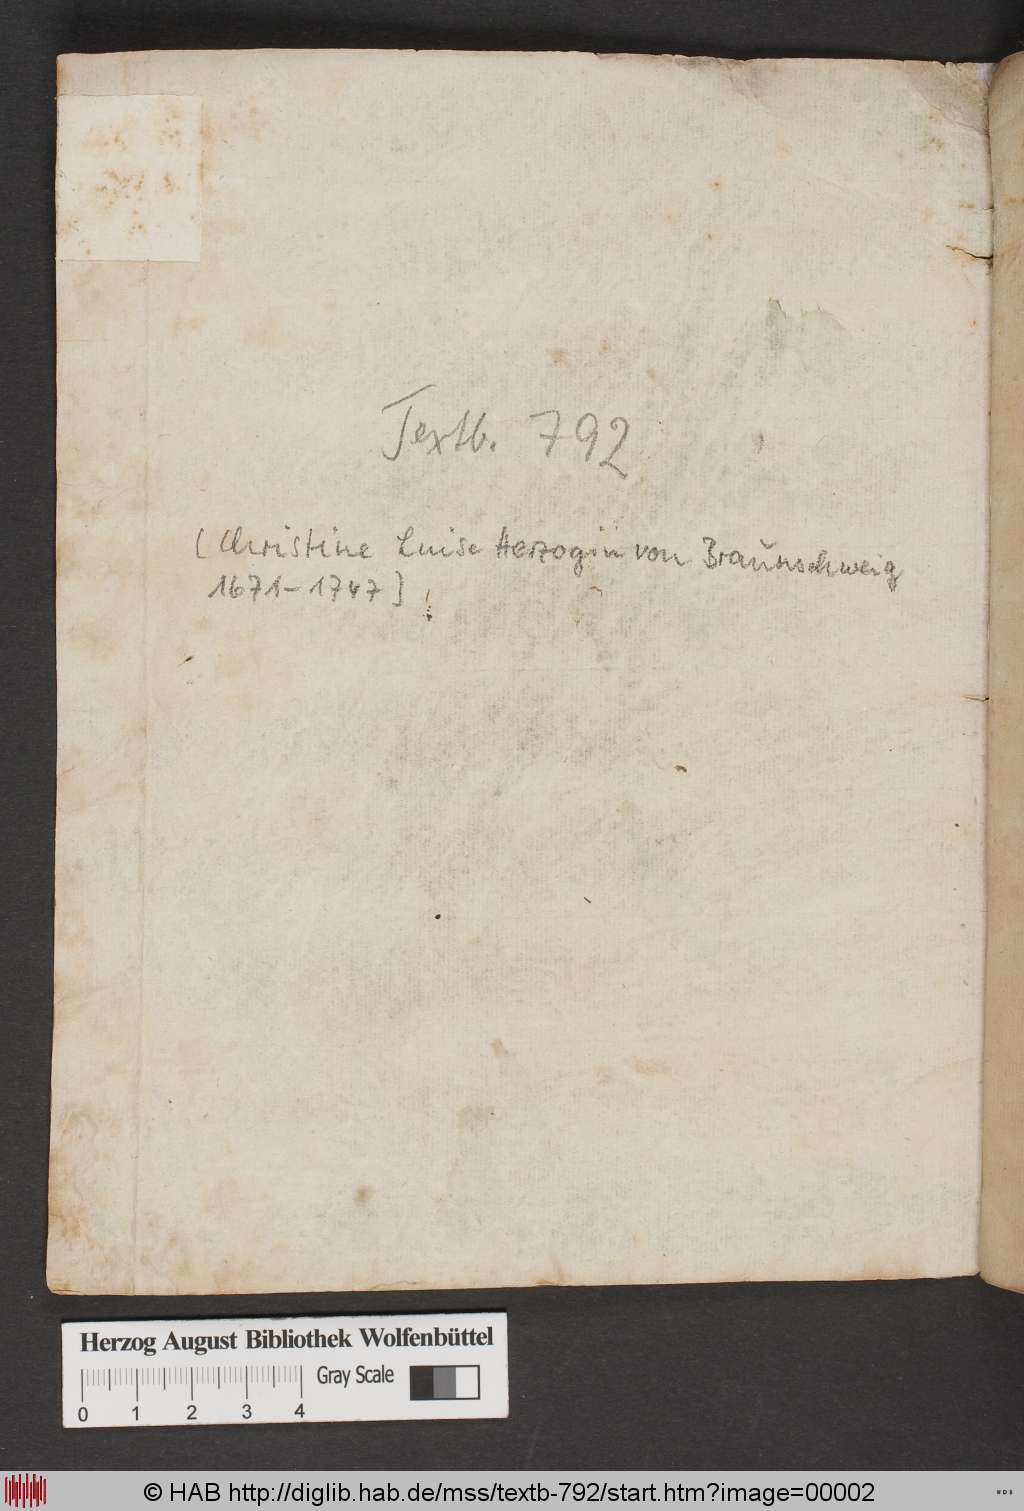 Textb. 792
[Christine Luise Herzogin von Braunschweig
1671-1747]
Herzog August Bibliothek Wolfenbüttel
Gray Scale
0 1 2 3 4
© HAB http://diglib.hab.de/mss/textb-792/start.htm?image=00002